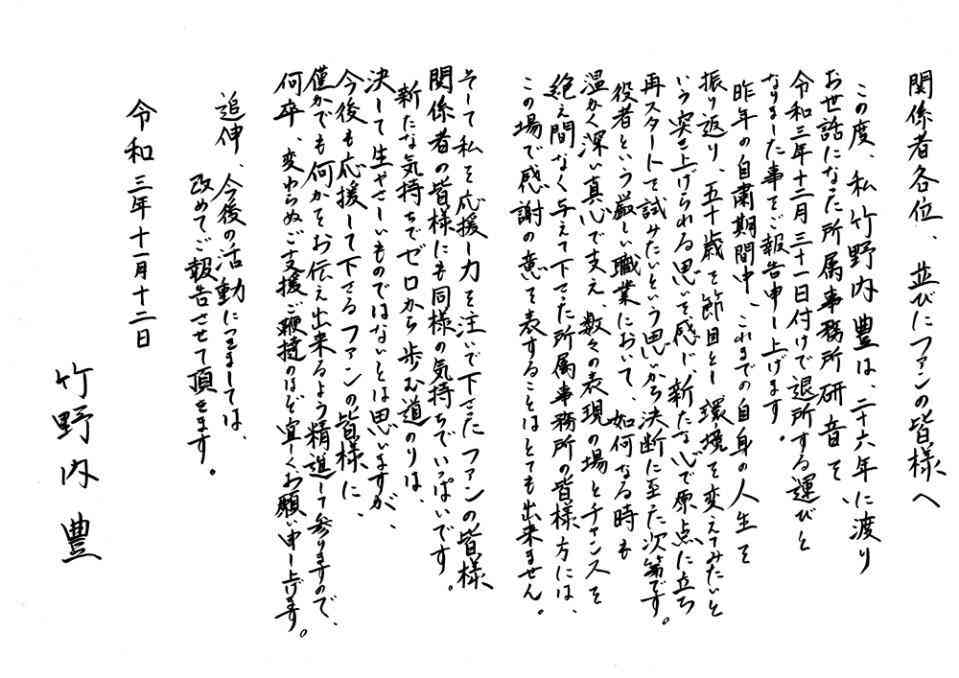 関係者各位、並びにファンの皆様へ
この度、私竹野内豊は、二十六年に渡り
お世話になった所属事務所研音を、
令和三年十二月三十一日付けで退所する運びと
なりました事をご報告申し上げます。
昨年の自粛期間中、これまでの自身の人生を
振り返り、五十歳を節目とし環境を変えてみたいと
いう突き上げられる思いを感じ、新たな心で原点に立ち
再スタートを試みたいという思いから決断に至った次第です。
役者という厳しい職業において、如何なる時も
温かく深い真心で支え、数々の表現の場とチャンスを
絶え間なく与えて下さった所属事務所の皆様方には、
この場で感謝の意を表することはとても出来ません。
そして私を応援し力を注いで下さったファンの皆様
関係者の皆様にも同様の気持ちでいっぱいです。
新たな気持ちでゼロから歩む道のりは、
決して生やさしいものではないとは思いますが、
今後も応援して下さるファンの皆様に
僅かでも何かをお伝え出来るよう精進して参りますので、
何卒、変わらぬご支援ご鞭撻のほど宜しくお願い申し上げます。
追伸、今後の活動につきましては、
改めてご報告させて頂きます。
令和三年十一月十二日
竹野内豊